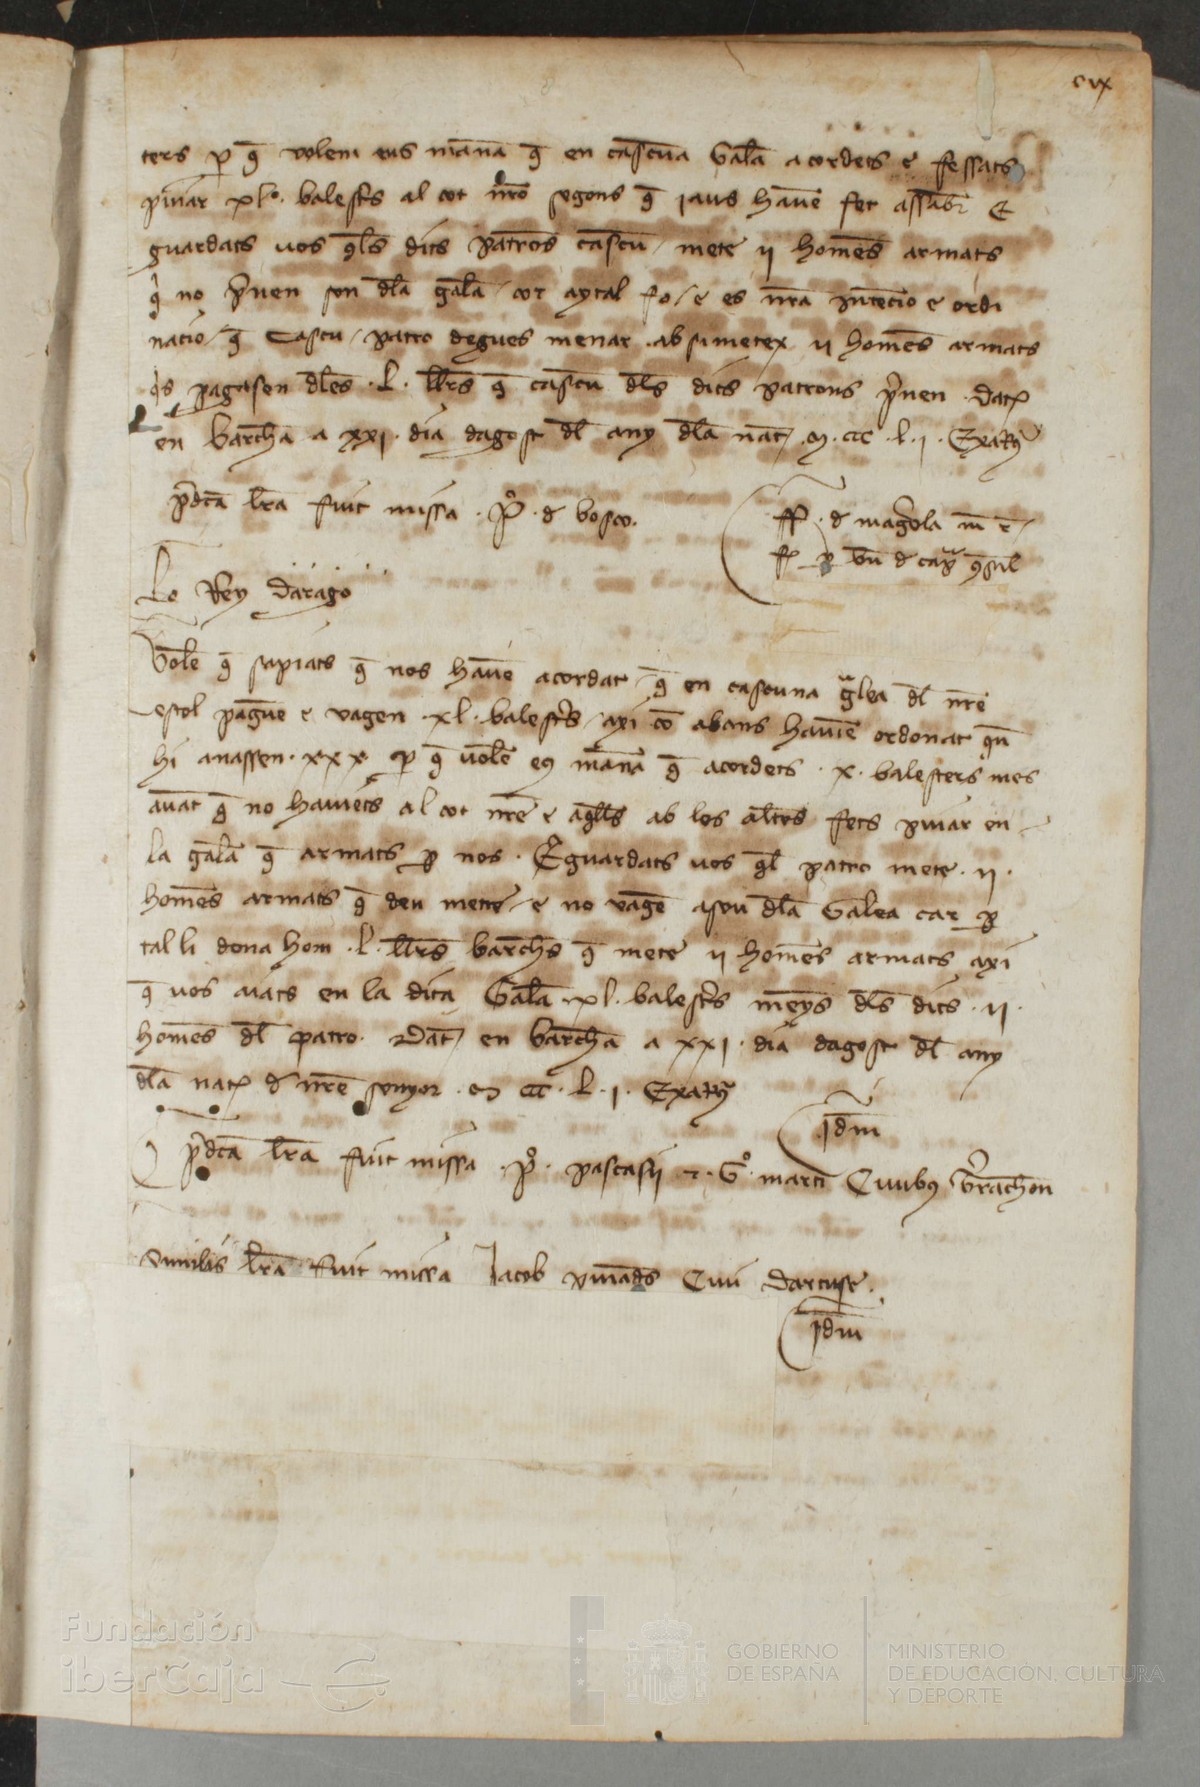 cix
ters p q̄ volem eus manā q̄ en cascūa Galā acordets e fessats
pujar xlᵒ. balests al cot nr̄o segons q̄ jaus havē fet assab̄ E
guardats vos q̄ls dits patrōs cascū mete ij homēs armats
q̄ no p̄nen son dl̄a galā cor aytal fo e es nr̄a intēcio e ordi
nacio q̄ Cascu patro degues menar ab simetex ij homēs armats
q̄s pagassen dl̄es .L. llr̄s q̄ cascū dl̄s dits patrons p̄nen Dat̄
en barchā a xxi. dia dagost dl̄ any dl̄a nat̄ .M. CCC .L. I. Exar̄
p̄dcā lr̄a fuit missa . Pᵒ. d bosco.
ff . d magᵒola m̄
Lo Rey darago
Volē q̄ sapiats q̄ nos havē acordat q̄ en cascuna galea dl̄ nr̄e
estol paguē e vagen .xl. balests axi cō abans haviē ordonat qn̄
hi anassen .xxx p q̄ volē eus manā q̄ acordets .x. balesters mes
avāt q̄ no haviets al cot nr̄e e aq̄lls ab los alt̄es fets pujar en
la galā q̄ armats p nos . E guardats vos q̄l patro mete .ij.
homēs armats q̄ deu metre e no vagē asou dl̄a Galea car p
tal li dona hom .L. llr̄s barchs q̄ mete ij homēs armats axi
q̄ vos aiats en la dita Galā .xl. balests mēys dl̄s dits .ij.
homēs dl̄ patro. Dat̄ en barchā a xxi. dia dagost dl̄ any
dl̄a nat̄ d nr̄e senyor . M CCC . L . I . Exar̄
Idm̄
p̄dcā lr̄a fuit missa . Pᵒ. pascasii et . Gᵒ. martī Civibus
similis lr̄a fuit missa Jacob Civi
Idm̄
Fundación
iberCaja
GOBIERNO
DE ESPAÑA
MINISTERIO
DE EDUCACIÓN, CULTURA
Y DEPORTE